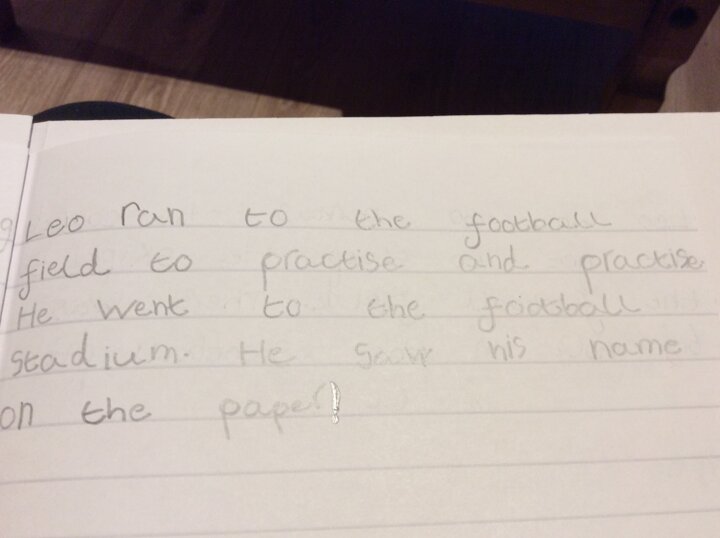 Leo ran to the football
field to practise and practise
He went to the football
stadium. He saw his name
on the paper!